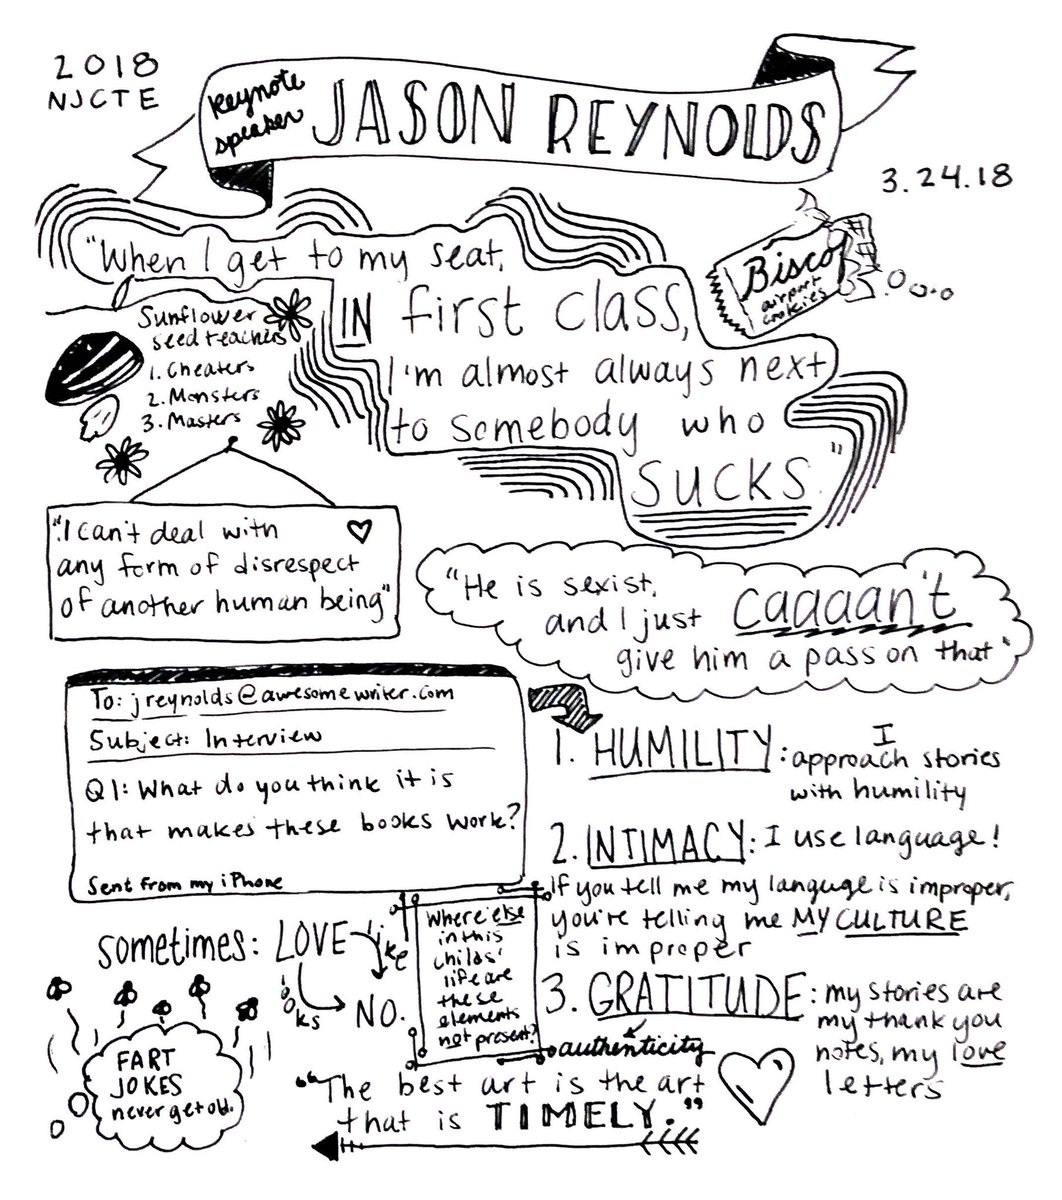 2018
NJCTE
keynote
speaker
JASON REYNOLDS
3.24.18
"When I get to my seat,
IN first class,
I'm almost always next
to somebody who
SUCKS."
Bisco
airport
cookies
Sunflower
seed teachers
1. Cheaters
2. Monsters
3. Masters
"I can't deal with
any form of disrespect
of another human being"
"He is sexist,
and I just caaaan't
give him a pass on that"
To: jreynolds@awesomewriter.com
Subject: Interview
Q1: What do you think it is
that makes these books work?
Sent from my iPhone
1. HUMILITY: I
approach stories
with humility
2. INTIMACY: I use language!
If you tell me my languge is improper,
you're telling me MY CULTURE
is improper
3. GRATITUDE: my stories are
my thank you
notes, my love
letters
sometimes: LOVE
like
looks
NO.
Where else
in this
childs'
life are
these
elements
not present?
FART
JOKES
never get old.
authenticity
"The best art is the art
that is TIMELY."